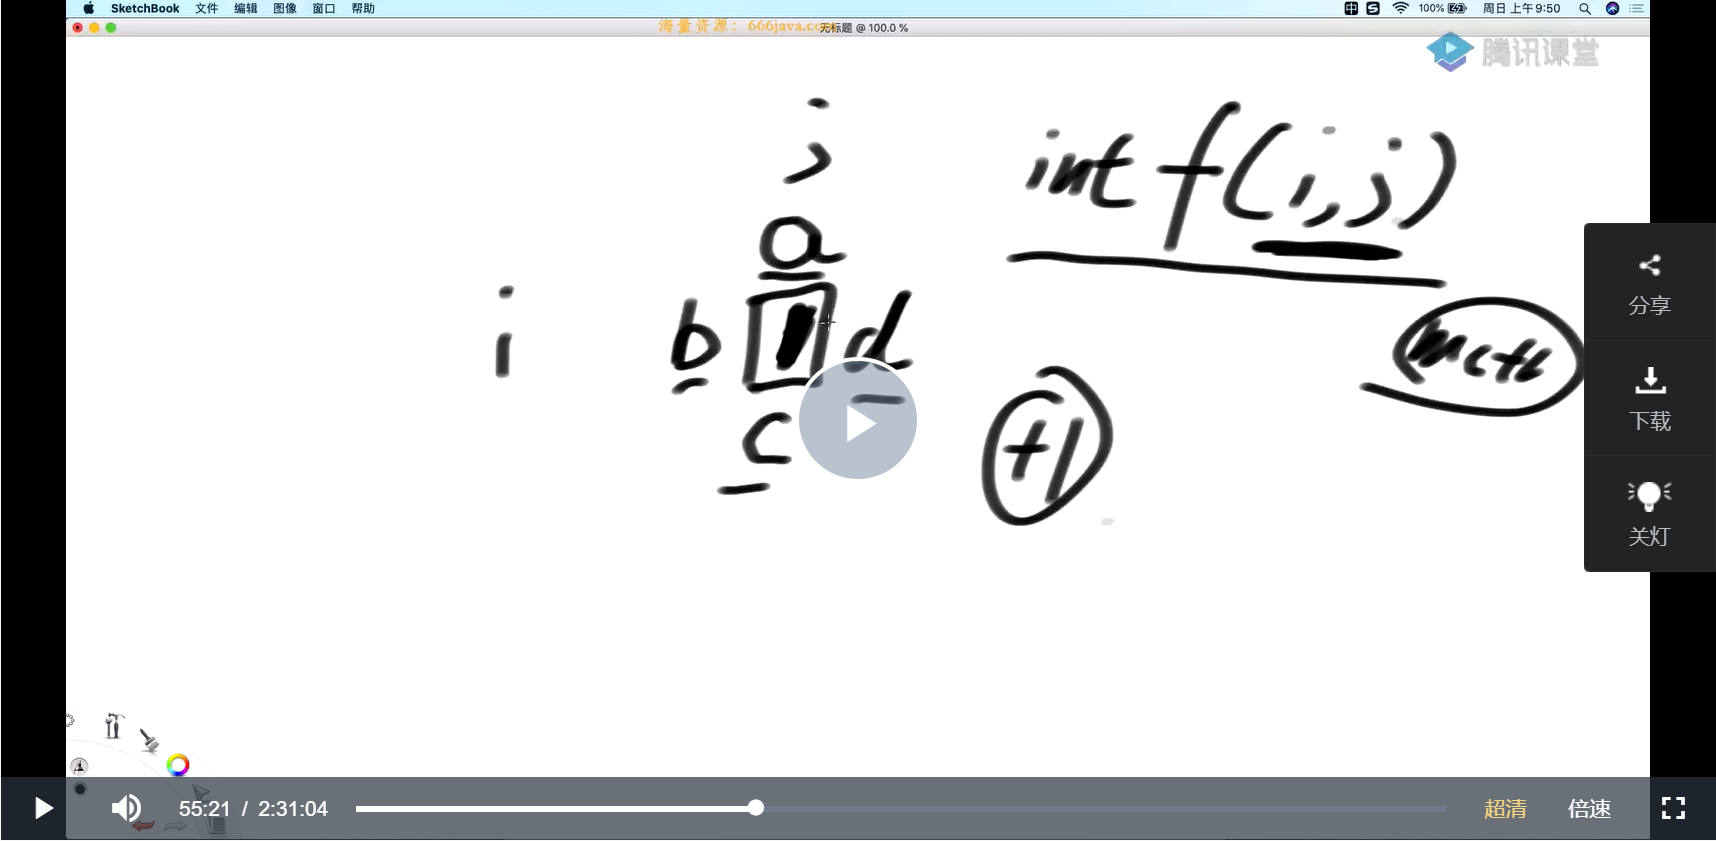 SketchBook 文件 编辑 图像 窗口 帮助 100% 周日 上午9:50
海量资源：666java.com
无标题 @ 100.0 %
腾讯课堂
j
int f(i,j)
a
i b d
c
+1
分享
下载
关灯
55:21 / 2:31:04 超清 倍速